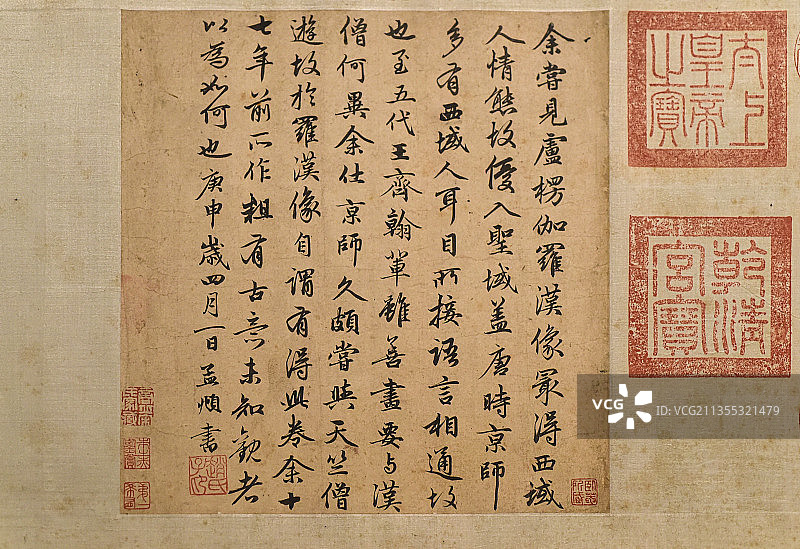 太上
皇帝
之寶
乾清
宮寶
余嘗見盧楞伽羅漢像㝡得西域
人情態故優入聖域盖唐時亰師
多有西域人耳目所接語言相通故
也至五代王齊翰輩雖善畫要与漢
僧何異余仕亰師久頗嘗與天竺僧
遊故於羅漢像自謂有得此卷余十
七年前所作粗有古意未知觀者
以為如何也庚申歲四月一日孟頫書
趙氏
子昂
VCG
VCG211355321479